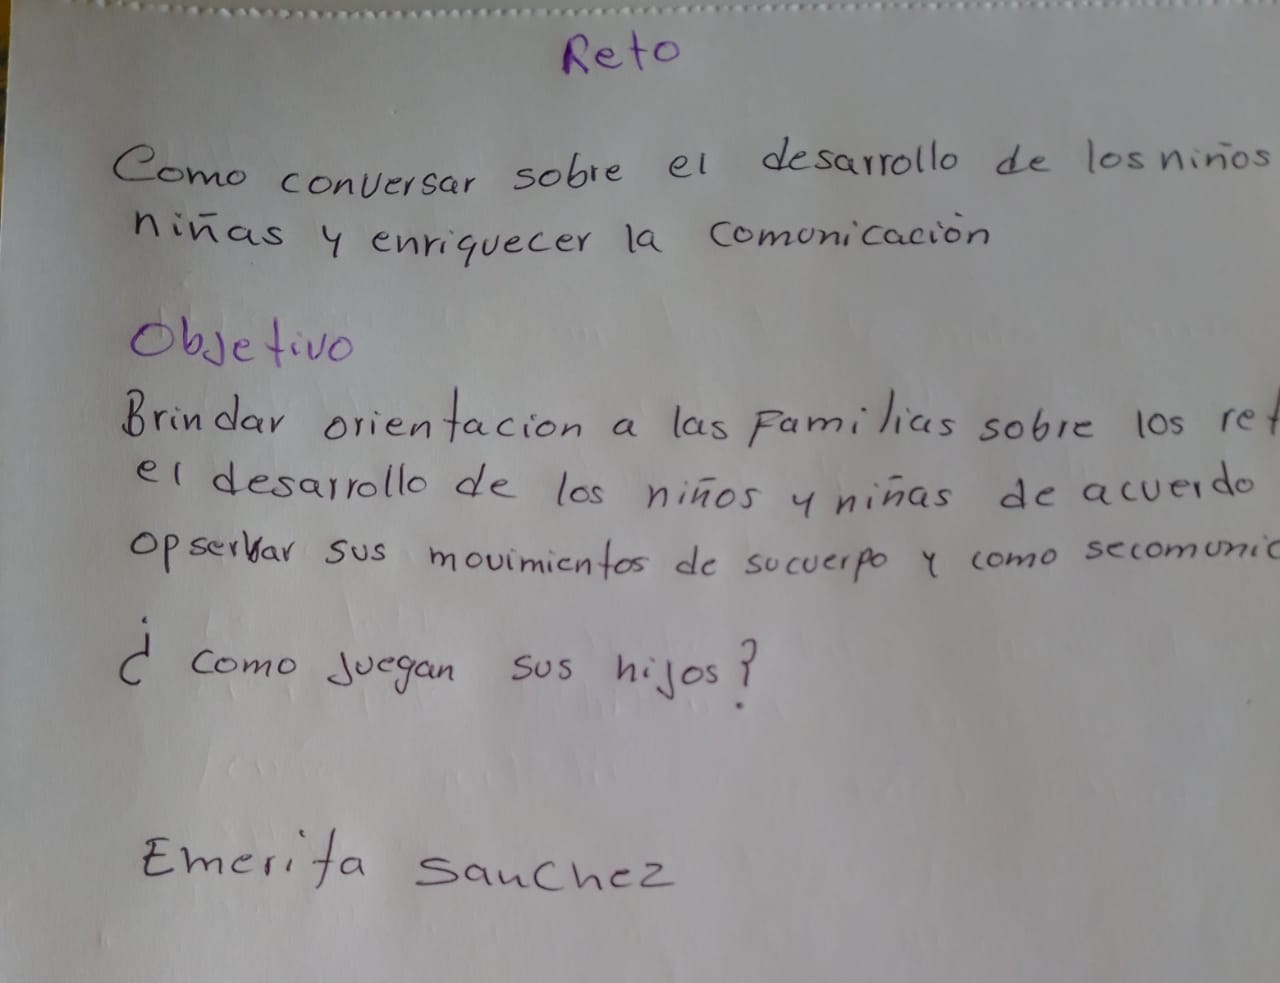 Reto
Como conversar sobre el desarrollo de los niños
niñas y enriquecer la comunicaciòn
Objetivo
Brindar orientacion a las Familias sobre los
el desarrollo de los niños y niñas de acuerdo
opserbar sus movimientos de sucuerpo y como
¿ como juegan sus hijos?
Emerita Sanchez